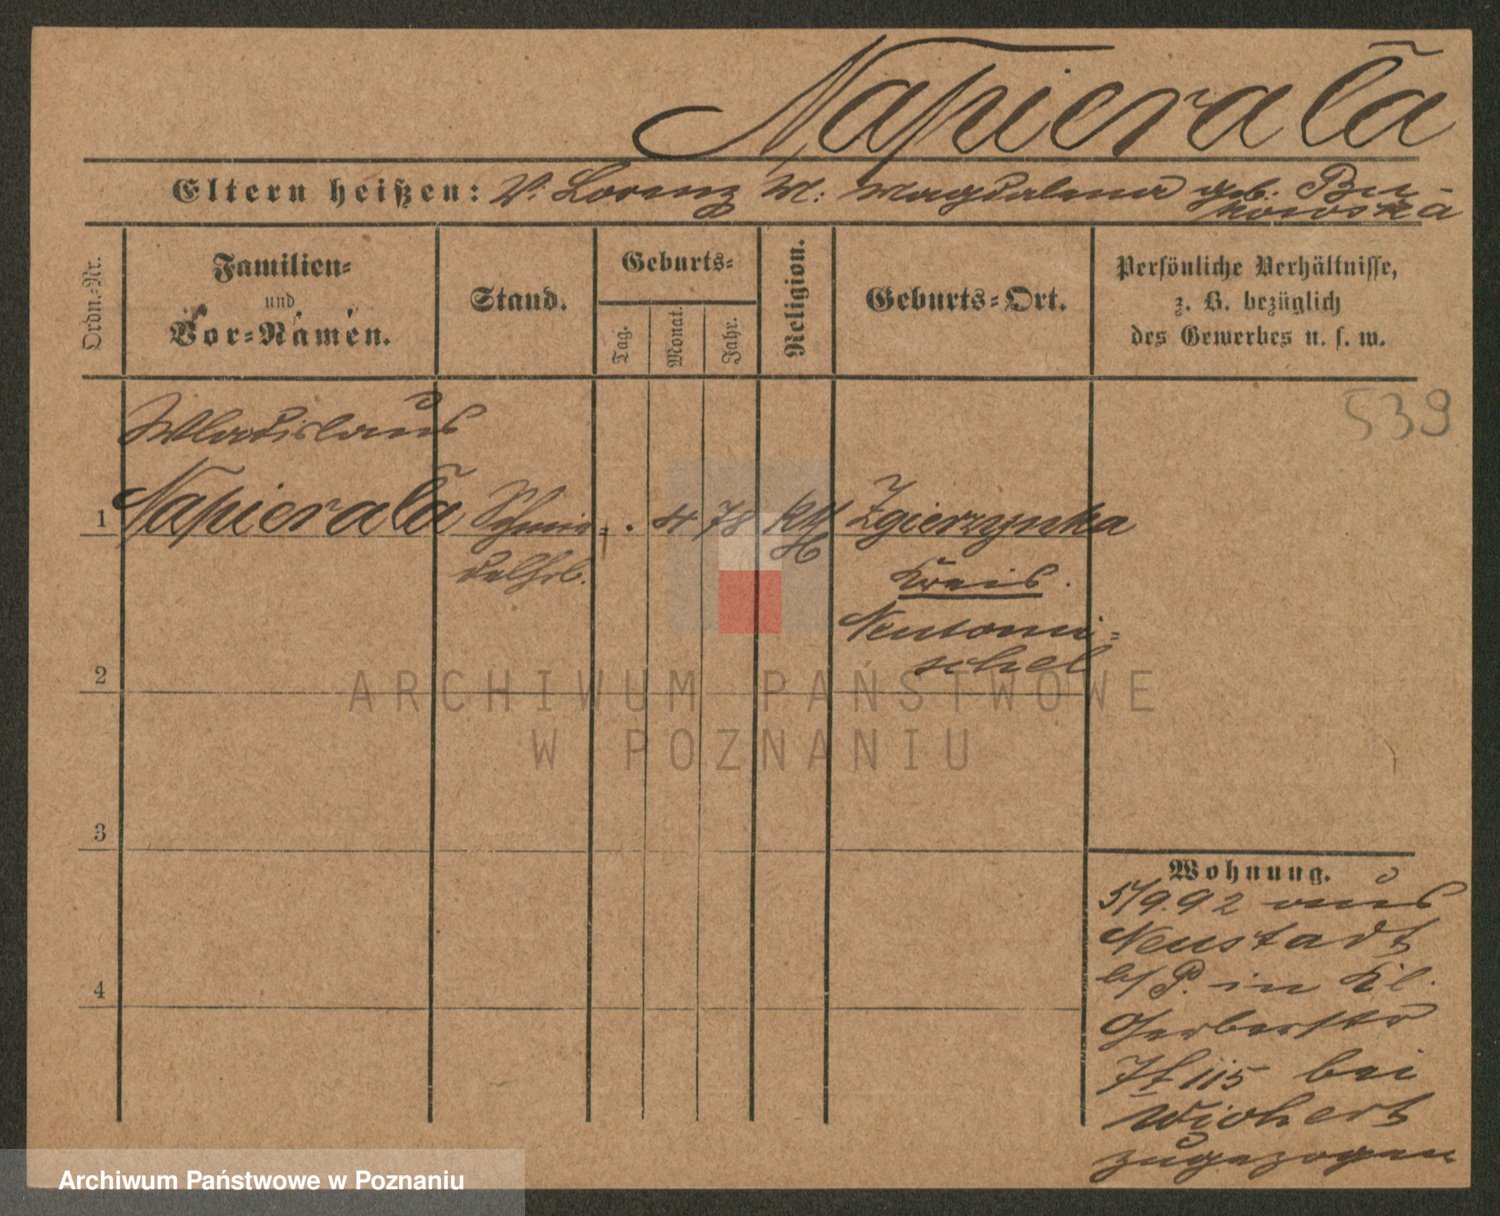 Napierała
Eltern heißen: V. Lorenz M: Magdalena geb. Bu-
kowska
Ordn.-Nr.
Familien-
und
Vor-Namen.
Stand.
Geburts-
Tag.
Monat.
Jahr.
Religion.
Geburts-Ort.
Persönliche Verhältnisse,
z. B. bezüglich
des Gewerbes u. s. w.
539
Wladislaus
1 Napierala Schmie- . 4 78 kth Zgierzynka
delhrl.
Kreis.
Neutomi-
schel
2
ARCHIWUM PAŃSTWOWE
W POZNANIU
3
4
Wohnung.
5/9.92 aus
Neustadt
b/P. in Kl.
Gerberstr
7 115 bei
Wichert
zugezogen
Archiwum Państwowe w Poznaniu